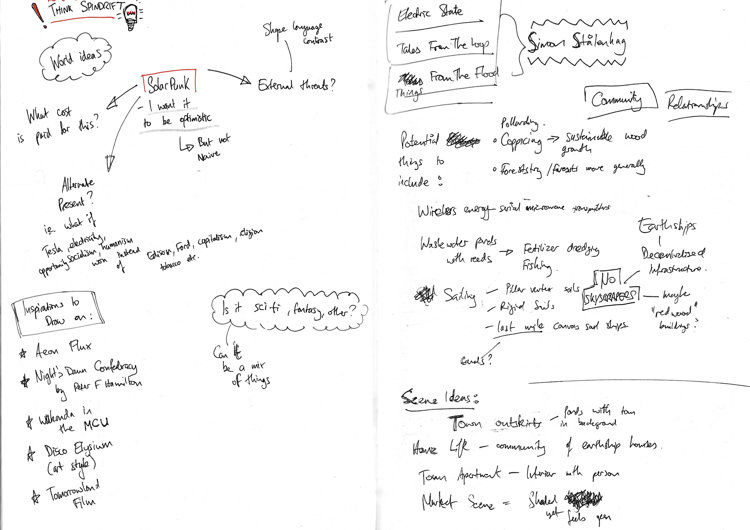 THINK SPINDRIFT
World ideas
Solar Punk
- I want it
to be optimistic
↳ But not
Naive
Shape language
contrast
External threats?
What cost
is paid for this?
Alternate
Present?
i.e. what if
Tesla, electricity,
opportunity, socialism, humanism
won instead
of
Edison, Ford, capitalism, religion
tobacco etc.
Inspirations to
Draw on:
☆ Aeon Flux
☆ Night's Dawn Confederacy
by Peter F Hamilton
☆ Wakanda in
the MCU
☆ Disco Elysium
(art style)
☆ Tomorrowland
Film
Is it sci fi, fantasy, other?
Can it
be a mix
of things
Electric State
Tales From The Loop
Things From The Flood
Simon Stålenhag
Community
Relationships
Potential
things to
include:
Pollarding
• Coppicing → sustainable wood
growth
• Forestry / forests more generally
Wireless energy - aerial microwave transmitters
Waste water ponds
with reeds → Fetilizer dredging
Fishing.
Sailing - Pillar vortex sails
- Rigid Sails
- last mile canvas sail ships.
Canals?
NO
SKYSCRAPERS
maybe
"redwood"
buildings?
Earthships
Decentralised
Infrastructure.
Scene Ideas:
Town outskirts - Ponds with town
in background
Home Life - community of earthship houses.
Town Apartment - Interior with person
Market Scene = Shaded
yet feels open